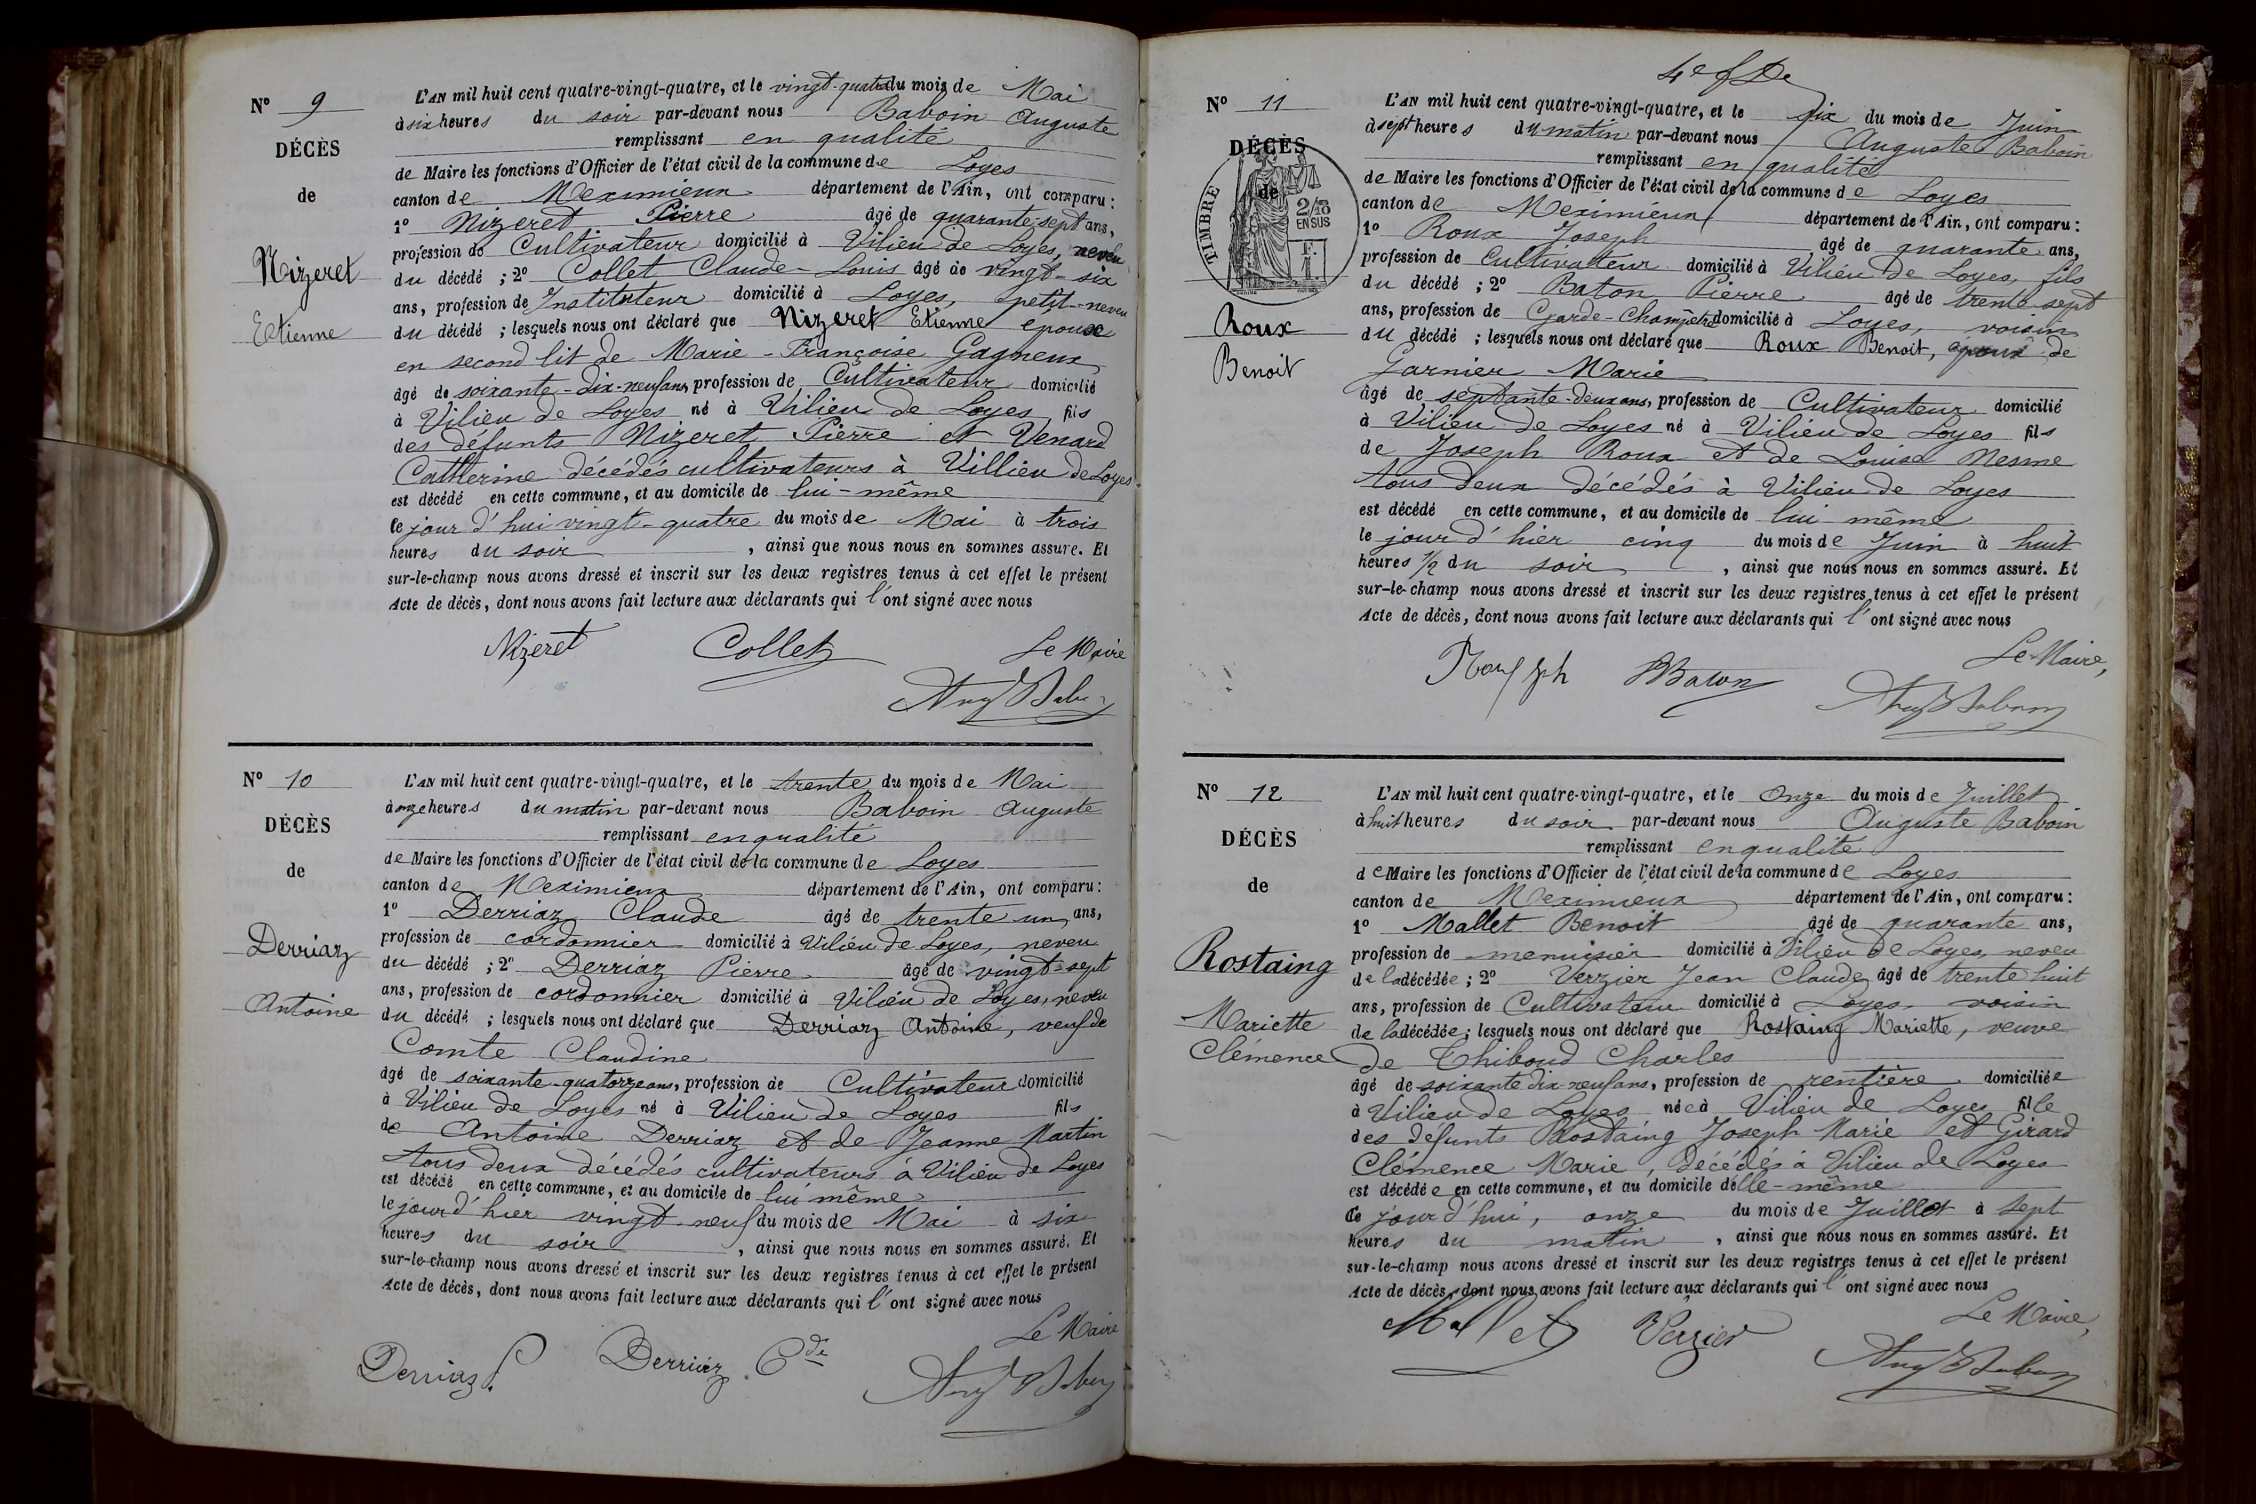 N° 9
DÉCÈS
de
Nizeret
Etienne
L'AN mil huit cent quatre-vingt-quatre, et le vingt-quatre du mois de Mai
à six heures du soir par-devant nous Baboin Auguste
remplissant en qualité
de Maire les fonctions d'Officier de l'état civil de la commune de Loyes
canton de Meximieux département de l'Ain, ont comparu :
1° Nizeret Pierre âgé de quarante-sept ans,
profession de Cultivateur domicilié à Vilieu de Loyes, neveu
du décédé ; 2° Collet Claude-Louis âgé de vingt-six
ans, profession de Instituteur domicilié à Loyes, petit-neveu
du décédé ; lesquels nous ont déclaré que Nizeret Etienne époux
en second lit de Marie-Françoise Gagneux
âgé de soixante-dix-neuf ans, profession de Cultivateur domicilié
à Vilieu de Loyes né à Vilieu de Loyes fils
des défunts Nizeret Pierre et Venard
Catherine décédés cultivateurs à Villieu de Loyes
est décédé en cette commune, et au domicile de lui-même
le jour d'hui vingt-quatre du mois de Mai à trois
heures du soir , ainsi que nous nous en sommes assuré. Et
sur-le-champ nous avons dressé et inscrit sur les deux registres tenus à cet effet le présent
Acte de décès, dont nous avons fait lecture aux déclarants qui l'ont signé avec nous
Nizeret Collet Le Maire
N° 10
DÉCÈS
de
Derriaz
Antoine
L'AN mil huit cent quatre-vingt-quatre, et le trente du mois de Mai
à onze heures du matin par-devant nous Baboin Auguste
remplissant en qualité
de Maire les fonctions d'Officier de l'état civil de la commune de Loyes
canton de Meximieux département de l'Ain, ont comparu :
1° Derriaz Claude âgé de trente un ans,
profession de cordonnier domicilié à Vilieu de Loyes, neveu
du décédé ; 2° Derriaz Pierre âgé de vingt-sept
ans, profession de cordonnier domicilié à Vilieu de Loyes, neveu
du décédé ; lesquels nous ont déclaré que Derriaz Antoine, veuf de
Comte Claudine
âgé de soixante-quatorze ans, profession de Cultivateur domicilié
à Vilieu de Loyes né à Vilieu de Loyes fils
de Antoine Derriaz et de Jeanne Martin
tous deux décédés cultivateurs à Vilieu de Loyes
est décédé en cette commune, et au domicile de lui même
le jour d'hier vingt-neuf du mois de Mai à six
heures du soir , ainsi que nous nous en sommes assuré. Et
sur-le-champ nous avons dressé et inscrit sur les deux registres tenus à cet effet le présent
Acte de décès, dont nous avons fait lecture aux déclarants qui l'ont signé avec nous
Le Maire
Derriaz P. Derriaz Cde
N° 11
DÉCÈS
de
TIMBRE
2/10
EN SUS
F.
Roux
Benoit
L'AN mil huit cent quatre-vingt-quatre, et le six du mois de Juin
à sept heures du matin par-devant nous Auguste Baboin
remplissant en qualité
de Maire les fonctions d'Officier de l'état civil de la commune de Loyes
canton de Meximieux département de l'Ain, ont comparu :
1° Roux Joseph âgé de quarante ans,
profession de Cultivateur domicilié à Vilieu de Loyes, fils
du décédé ; 2° Baton Pierre âgé de trente sept
ans, profession de Garde-Champêtre domicilié à Loyes, voisin
du décédé ; lesquels nous ont déclaré que Roux Benoit, époux de
Garnier Marie
âgé de septante-deux ans, profession de Cultivateur domicilié
à Vilieu de Loyes né à Vilieu de Loyes fils
de Joseph Roux et de Louise Mesme
tous deux décédés à Vilieu de Loyes
est décédé en cette commune, et au domicile de lui même
le jour d'hier cinq du mois de Juin à huit
heures 1/2 du soir , ainsi que nous nous en sommes assuré. Et
sur-le-champ nous avons dressé et inscrit sur les deux registres tenus à cet effet le présent
Acte de décès, dont nous avons fait lecture aux déclarants qui l'ont signé avec nous
Le Maire,
Baton
N° 12
DÉCÈS
de
Rostaing
Mariette
Clémence
L'AN mil huit cent quatre-vingt-quatre, et le Onze du mois de Juillet
à huit heures du soir par-devant nous Auguste Baboin
remplissant en qualité
de Maire les fonctions d'Officier de l'état civil de la commune de Loyes
canton de Meximieux département de l'Ain, ont comparu :
1° Mallet Benoit âgé de quarante ans,
profession de menuisier domicilié à Vilieu de Loyes, neveu
de la décédée ; 2° Verzier Jean Claude âgé de trente huit
ans, profession de Cultivateur domicilié à Loyes, voisin
de la décédée ; lesquels nous ont déclaré que Rostaing Mariette, veuve
de Thiboud Charles
âgé de soixante dix-neuf ans, profession de rentière domiciliée
à Vilieu de Loyes née à Vilieu de Loyes fille
des défunts Rostaing Joseph Marie et Girard
Clémence Marie, décédés à Vilieu de Loyes
est décédée en cette commune, et au domicile d'elle-même
le jour d'hui, onze du mois de Juillet à sept
heures du matin , ainsi que nous nous en sommes assuré. Et
sur-le-champ nous avons dressé et inscrit sur les deux registres tenus à cet effet le présent
Acte de décès, dont nous avons fait lecture aux déclarants qui l'ont signé avec nous
Le Maire,
Mallet Verzier